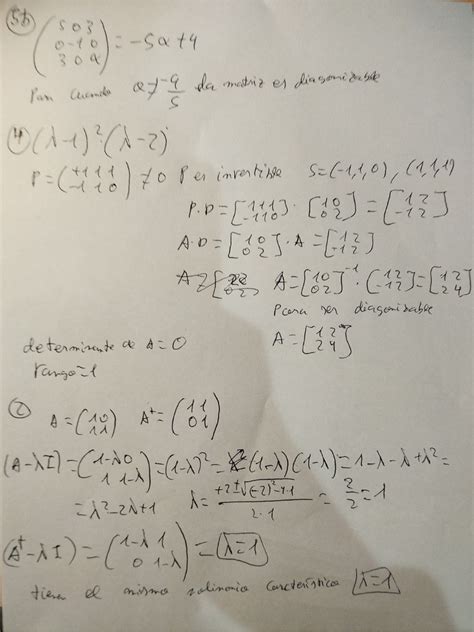 5b) (5 0 3 / 0 -1 0 / 3 0 α) = -5α+4
Para cuando α ≠ -9/5 la matriz es diagonizable
4) (λ-1)²·(λ-2)
P = (+1 1 1 / -1 1 0) ≠ 0 P es invertible S = (-1,1,0), (1,1,1)
P·D = [1 1 1 / -1 1 0] · [1 0 / 0 2] = [1 2 / -1 2]
A·D = [1 0 / 0 2] · A = [1 2 / -1 2]
A = [1 0 / 0 2]⁻¹ · (1 2 / -1 2) = [1 2 / 2 4]
para ser diagonizable
A = [1 2 / 2 4]
determinante de A = 0
rango = 1
2) A = (1 0 / 1 1) Aᵗ = (1 1 / 0 1)
(A-λI) = (1-λ 0 / 1 1-λ) = (1-λ)² = (1-λ)(1-λ) = 1-λ-λ+λ² =
= λ²-2λ+1 λ = (+2±√((-2)²-4·1))/(2·1) = 2/2 = 1
(Aᵗ-λI) = (1-λ 1 / 0 1-λ) = λ=1
tiene el mismo polinomio característico λ=1